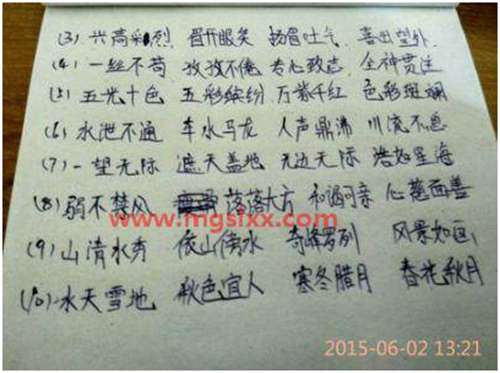 (3) 兴高彩烈 眉开眼笑 扬眉吐气 喜出望外
(4) 一丝不苟 孜孜不倦 专心致志 全神贯注
(5) 五光十色 五彩缤纷 万紫千红 色彩斑斓
(6) 水泄不通 车水马龙 人声鼎沸 川流不息
(7) 一望无际 遮天盖地 无边无际 浩如星海
(8) 弱不禁风 落落大方 和谒可亲 心慈面善
www.mgsfxx.com
(9) 山清水秀 依山傍水 奇峰罗列 风景如画
(10) 水天雪地 秋色宜人 寒冬腊月 春花秋月
2015-06-02 13:21